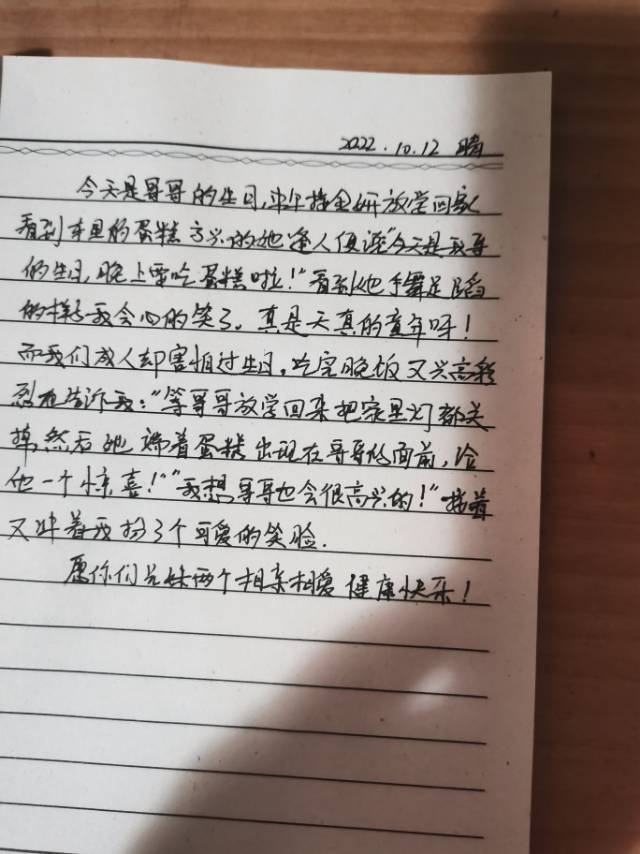 2022.10.12 晴
今天是哥哥的生日,中午接金妍放学回家
看到车里的蛋糕高兴的她逢人便说"今天是我哥
的生日,晚上要吃蛋糕啦!"看到她手舞足蹈
的样子我会心的笑了。真是天真的童年呀!
而我们成人却害怕过生日。吃完晚饭又兴高彩
烈在告诉我:"等哥哥放学回来把家里灯都关
掉,然后她端着蛋糕出现在哥哥的面前,给
他一个惊喜!""我想哥哥也会很高兴的!"接着
又冲着我扮了个可爱的笑脸.
愿你们兄妹两个相亲相爱健康快乐!